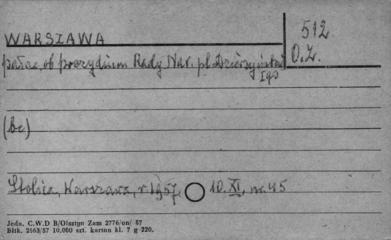 WARSZAWA
512
O.Z.
pałac, ob prezydium Rady Nar. pl. Dzierżyńskiego
(bc)
Stolica, Warszawa, r. 1957, 10.XI, nr. 45
Jedn. C.W.D B/Olsztyn Zam 2776/on/ 57
Bltk. 2563/57 10.000 szt. karton kl. 7 g 220.